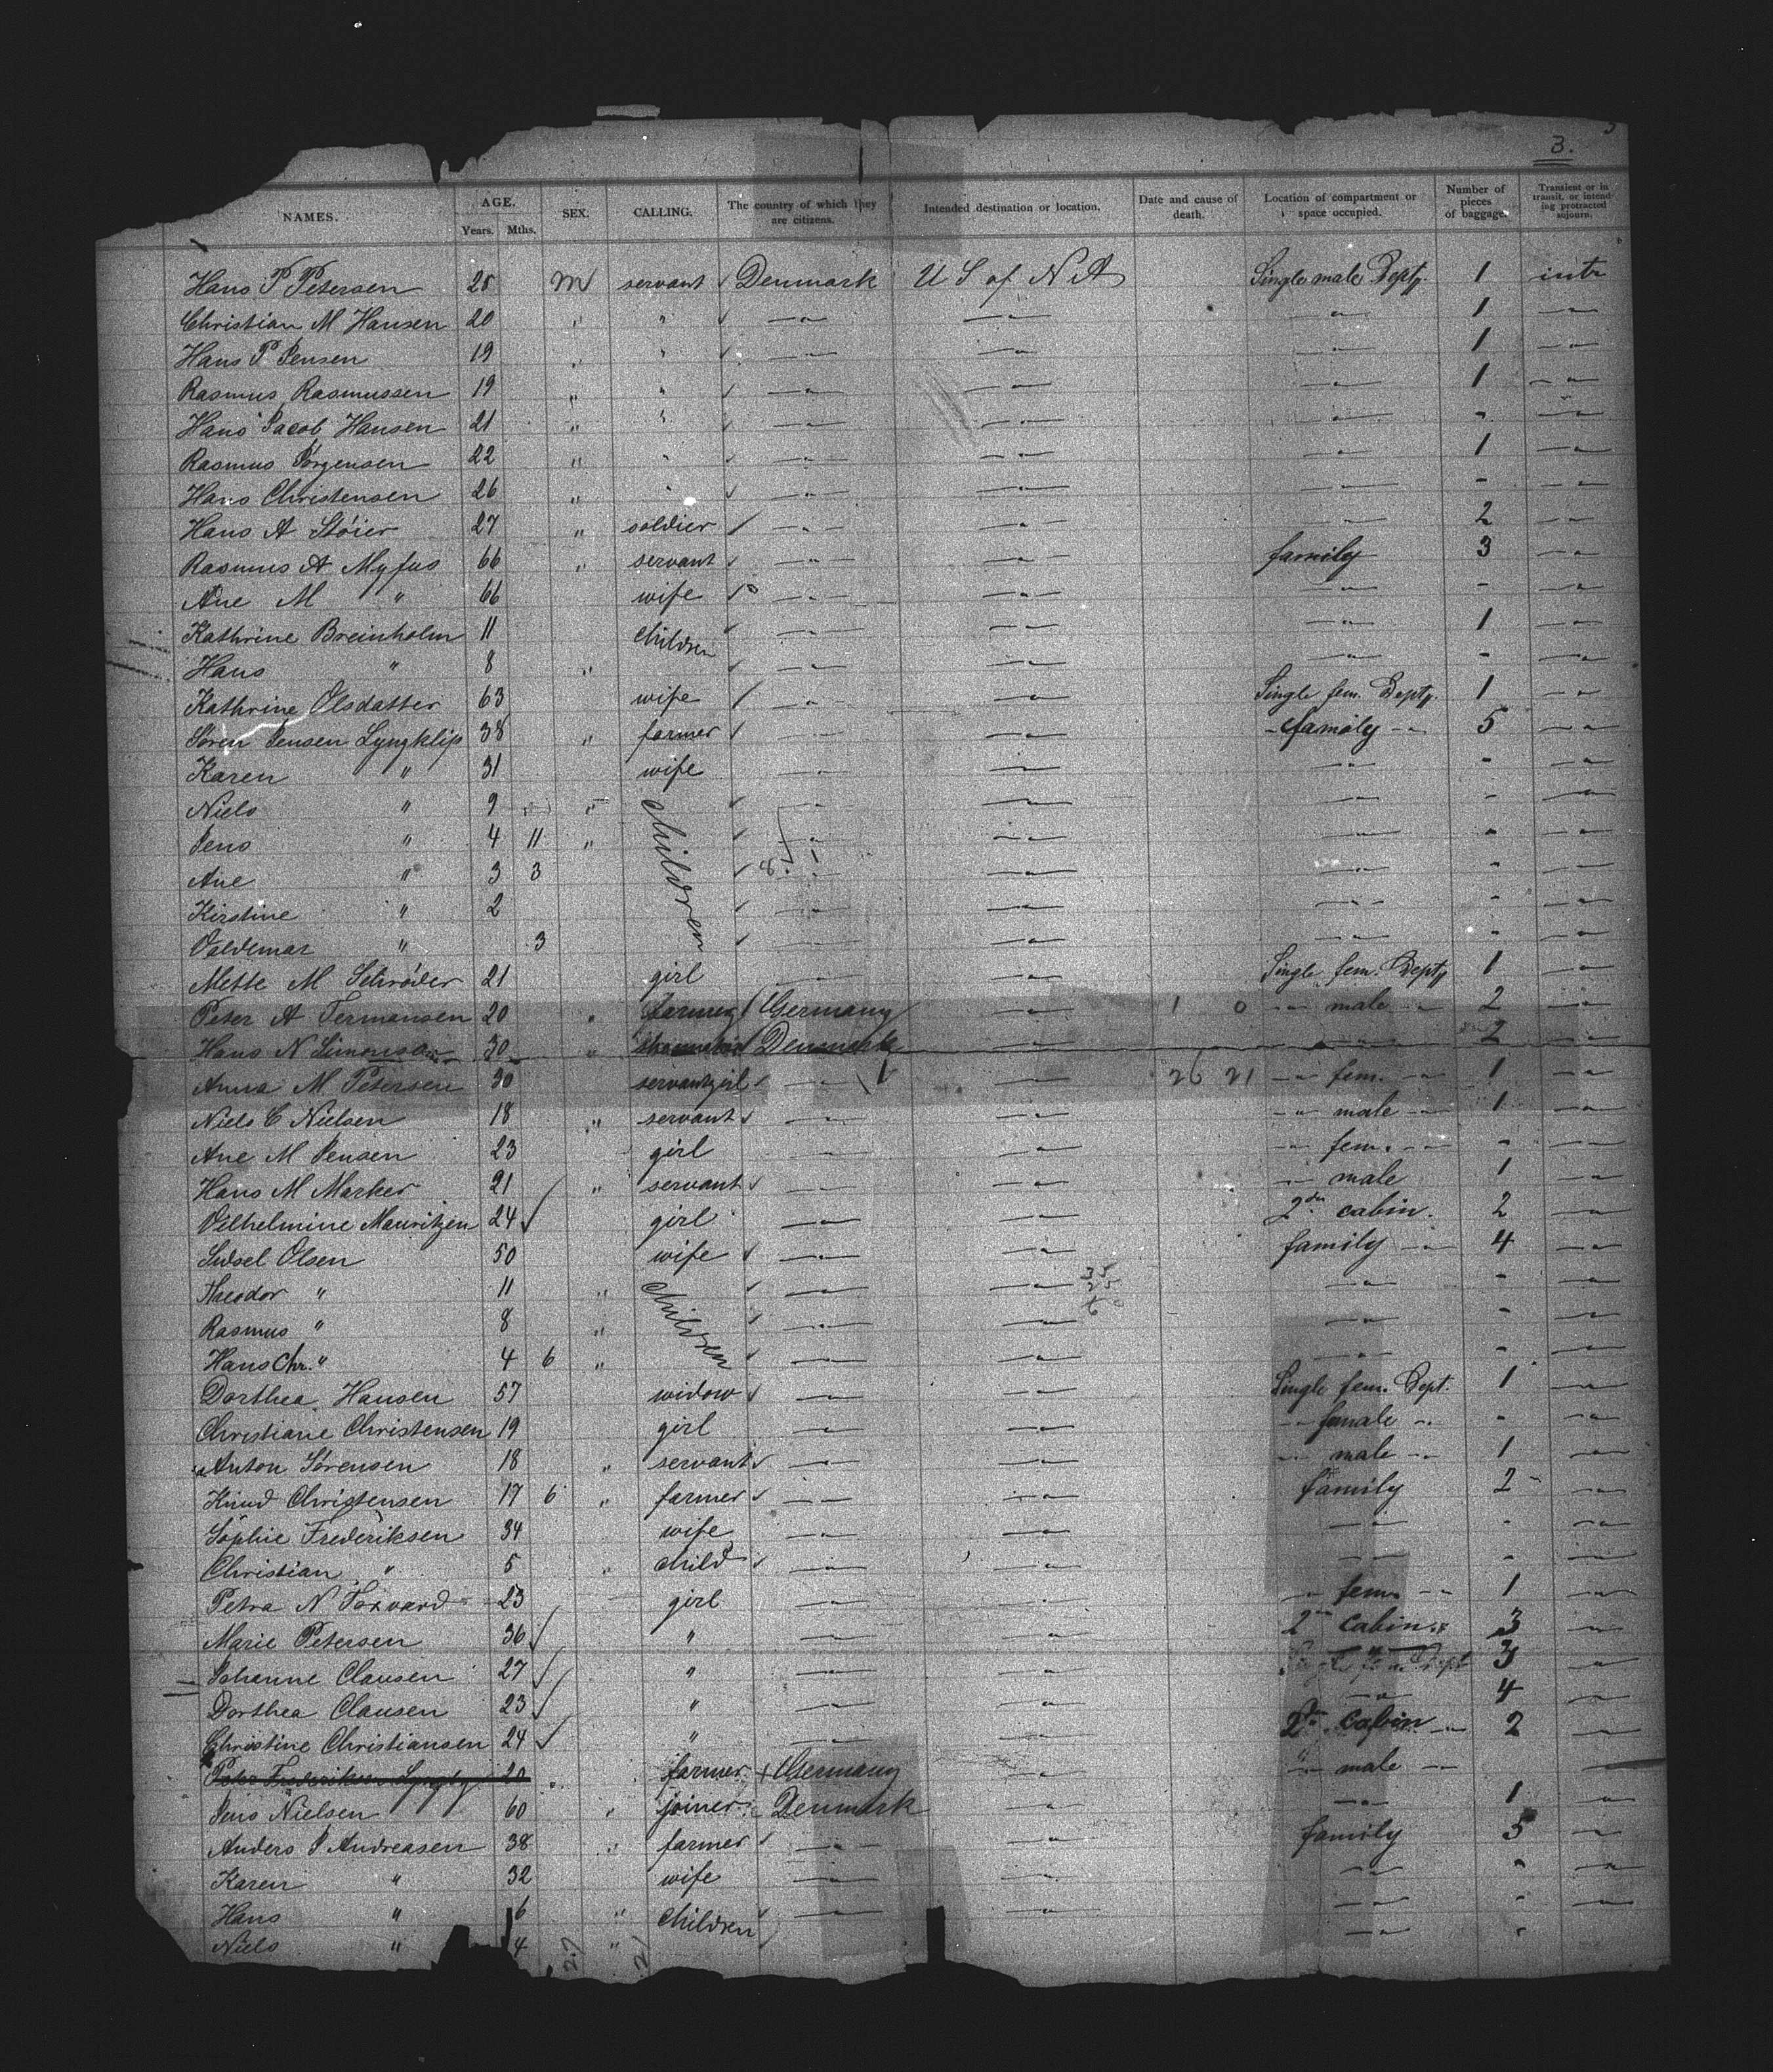 3.
NAMES. AGE. Years. Mths. SEX. CALLING. The country of which they are citizens. Intended destination or location. Date and cause of death. Location of compartment or space occupied. Number of pieces of baggage. Transient or in transit, or intending protracted sojourn.
Hans P Petersen 25 M servant Denmark U S of N A Single male Dept. 1 intr
Christian M Hansen 20 " " —"— —"— —"— 1 —"—
Hans P Jensen 19 " " —"— —"— —"— 1 —"—
Rasmus Rasmussen 19 " " —"— —"— —"— 1 —"—
Hans Jacob Hansen 21 " " —"— —"— —"— - —"—
Rasmus Jörgensen 22 " " —"— —"— —"— 1 —"—
Hans Christensen 26 " " —"— —"— —"— - —"—
Hans A Stöier 27 " soldier —"— —"— —"— 2 —"—
Rasmus A Myfus 66 " servant —"— —"— family 3 —"—
Ane M " 66 wife —"— —"— —"— - —"—
Kathrine Breinholm 11 children —"— —"— —"— 1 —"—
Hans " 8 " —"— —"— —"— - —"—
Kathrine Olsdatter 63 wife —"— —"— Single fem. Dept. 1 —"—
Sören Jensen Lyngklip 38 " farmer —"— —"— family 5 —"—
Karen " 31 wife —"— —"— —"— - —"—
Niels " 9 " children —"— —"— —"— - —"—
Jens " 4 11 " —"— —"— —"— - —"—
Ane " 3 3 —"— —"— —"— - —"—
Kirstine " 2 —"— —"— —"— - —"—
Valdemar " 3 —"— —"— —"— - —"—
Mette M Schröder 21 girl —"— —"— Single fem. Dept 1 —"—
Peter A Termansen 20 " farmer Germany —"— 1 0 —"— male —"— 2 —"—
Hans N 30 " Denmark —"— —"— 2 —"—
Anna M Petersen 30 servantgirl —"— —"— 26 21 —"— fem. —"— 1 —"—
Niels C Nielsen 18 " servant —"— —"— —"— male —"— 1 —"—
Ane M Jensen 23 girl —"— —"— —"— fem. —"— - —"—
Hans M Marker 21 " servant —"— —"— —"— male 1 —"—
Vilhelmine Mauritzen 24 girl —"— —"— 2 cabin. 2 —"—
Sidsel Olsen 50 wife —"— —"— family —"— 4 —"—
Theodor " 11 " children —"— —"— —"— - —"—
Rasmus " 8 " —"— —"— —"— - —"—
Hans Chr. " 4 6 " —"— —"— —"— - —"—
Dorthea Hansen 57 widow —"— —"— Single fem. Dept. 1 —"—
Christiane Christensen 19 girl —"— —"— —"— female —"— - —"—
Anton Sörensen 18 " servant —"— —"— —"— male —"— 1 —"—
Knud Christensen 17 6 " farmer —"— —"— family 2 —"—
Sophie Frederiksen 34 wife —"— —"— —"— - —"—
Christian " 5 " child —"— —"— —"— - —"—
Petra N Toxvard 23 girl —"— —"— —"— fem. —"— 1 —"—
Marie Petersen 36 " —"— —"— 2 cabin 3 —"—
Johanne Clausen 27 " —"— —"— 3 —"—
Dorthea Clausen 23 " —"— —"— —"— 4 —"—
Christine Christiansen 24 " —"— —"— 2 cabin —"— 2 —"—
Peter Frederiksen Lyngby 20 " farmer Germany —"— —"— male —"—
Jens Nielsen 60 " joiner Denmark —"— —"— 1 —"—
Anders P Andreasen 38 " farmer —"— —"— family 5 —"—
Karen " 32 wife —"— —"— —"— - —"—
Hans " 6 " children —"— —"— —"— - —"—
Niels " 4 " —"— -